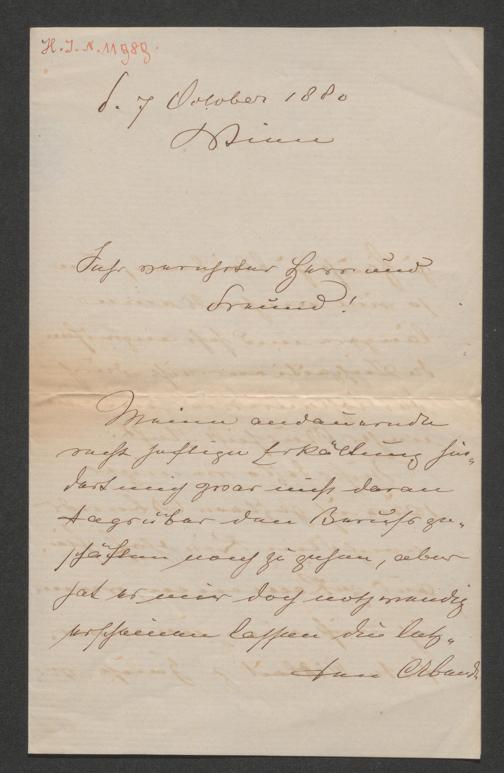 H.I.N. 11989.
d. 7 October 1880
Wien
Sehr verehrter Herr und
Freund!
Meine andauernde
recht heftige Erkältung hin-
dert mich zwar nicht daran
tagsüber den Berufsge-
schäften nach zu gehen, aber
hat es mir doch nothwendig
erscheinen lassen die letz-
ten Abend